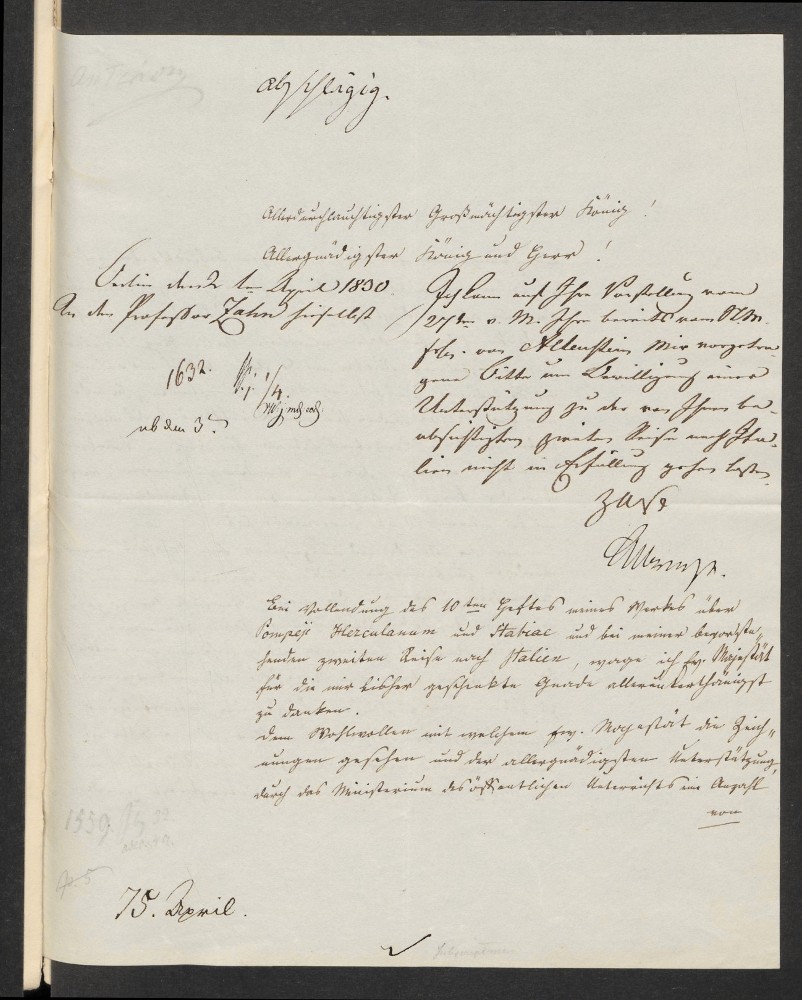 abschlägig.
Allerdurchlauchtigster Großmächtigster König!
Allergnädigster König und Herr!
Berlin den 1ten April 1830
An den Professor Zahn hieselbst
1632.
1/4.
ab den 3t
Ich kann auf Ihre Vorstellung vom
27ten v. M. Ihre bereits vom StM.
Frhr. von Altenstein Mir vorgetra-
gene Bitte um Bewilligung einer
Unterstützung zu der von Ihnen be-
absichtigten zweiten Reise nach Ita-
lien nicht in Erfüllung gehen lassen.
Bei Vollendung des 10ten Heftes meines Werkes über
Pompeji Herculanum und Stabiae und bei meiner bevorste-
henden zweiten Reise nach Italien, wage ich Ew. Majestät
für die mir bisher geschenkte Gnade allerunterthänigst
zu danken.
Dem Wohlwollen mit welchem Ew. Majestät die Zeich-
nungen gesehen und der allergnädigsten Unterstützung
durch das Ministerium des öffentlichen Unterrichts eine Anzahl
von
15. April.